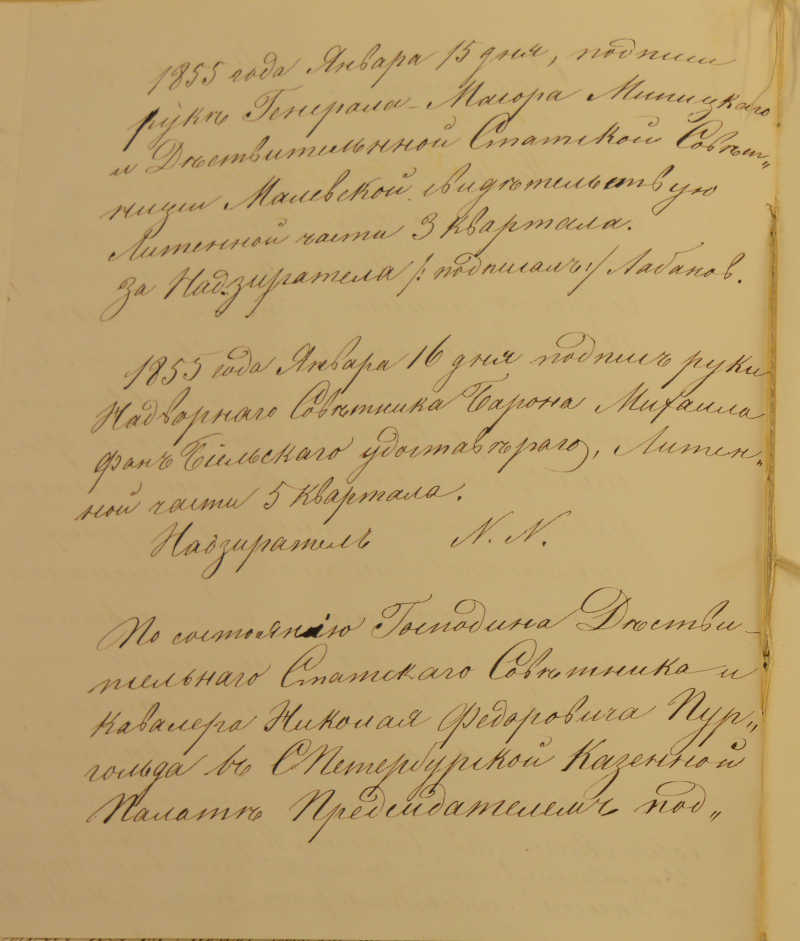 1855 года Января 15 дня, подписи
рукъ Генерала-Маіора Миницкаго
и Дѣствительнной Статской Совѣт„
ницы Малевской свидѣтельствую
Литенной части 3 квартала.
За Надзирателя /: подписалъ :/ Лабановъ.
1855 года Января 16 дня подпись руки
Надворнаго Совѣтника Барона Михаила
фонъ Бiельскаго удоставѣраю, Литен„
ной части 5 квартала.
Надзиратель N. N.
По состоянію Господина Дѣстви-
тельнаго Статскаго Совѣтника и
Кавалера Николая Федоровича Пур„
гольда въ СПетербурской Казенной
Палатѣ Председателемъ под„